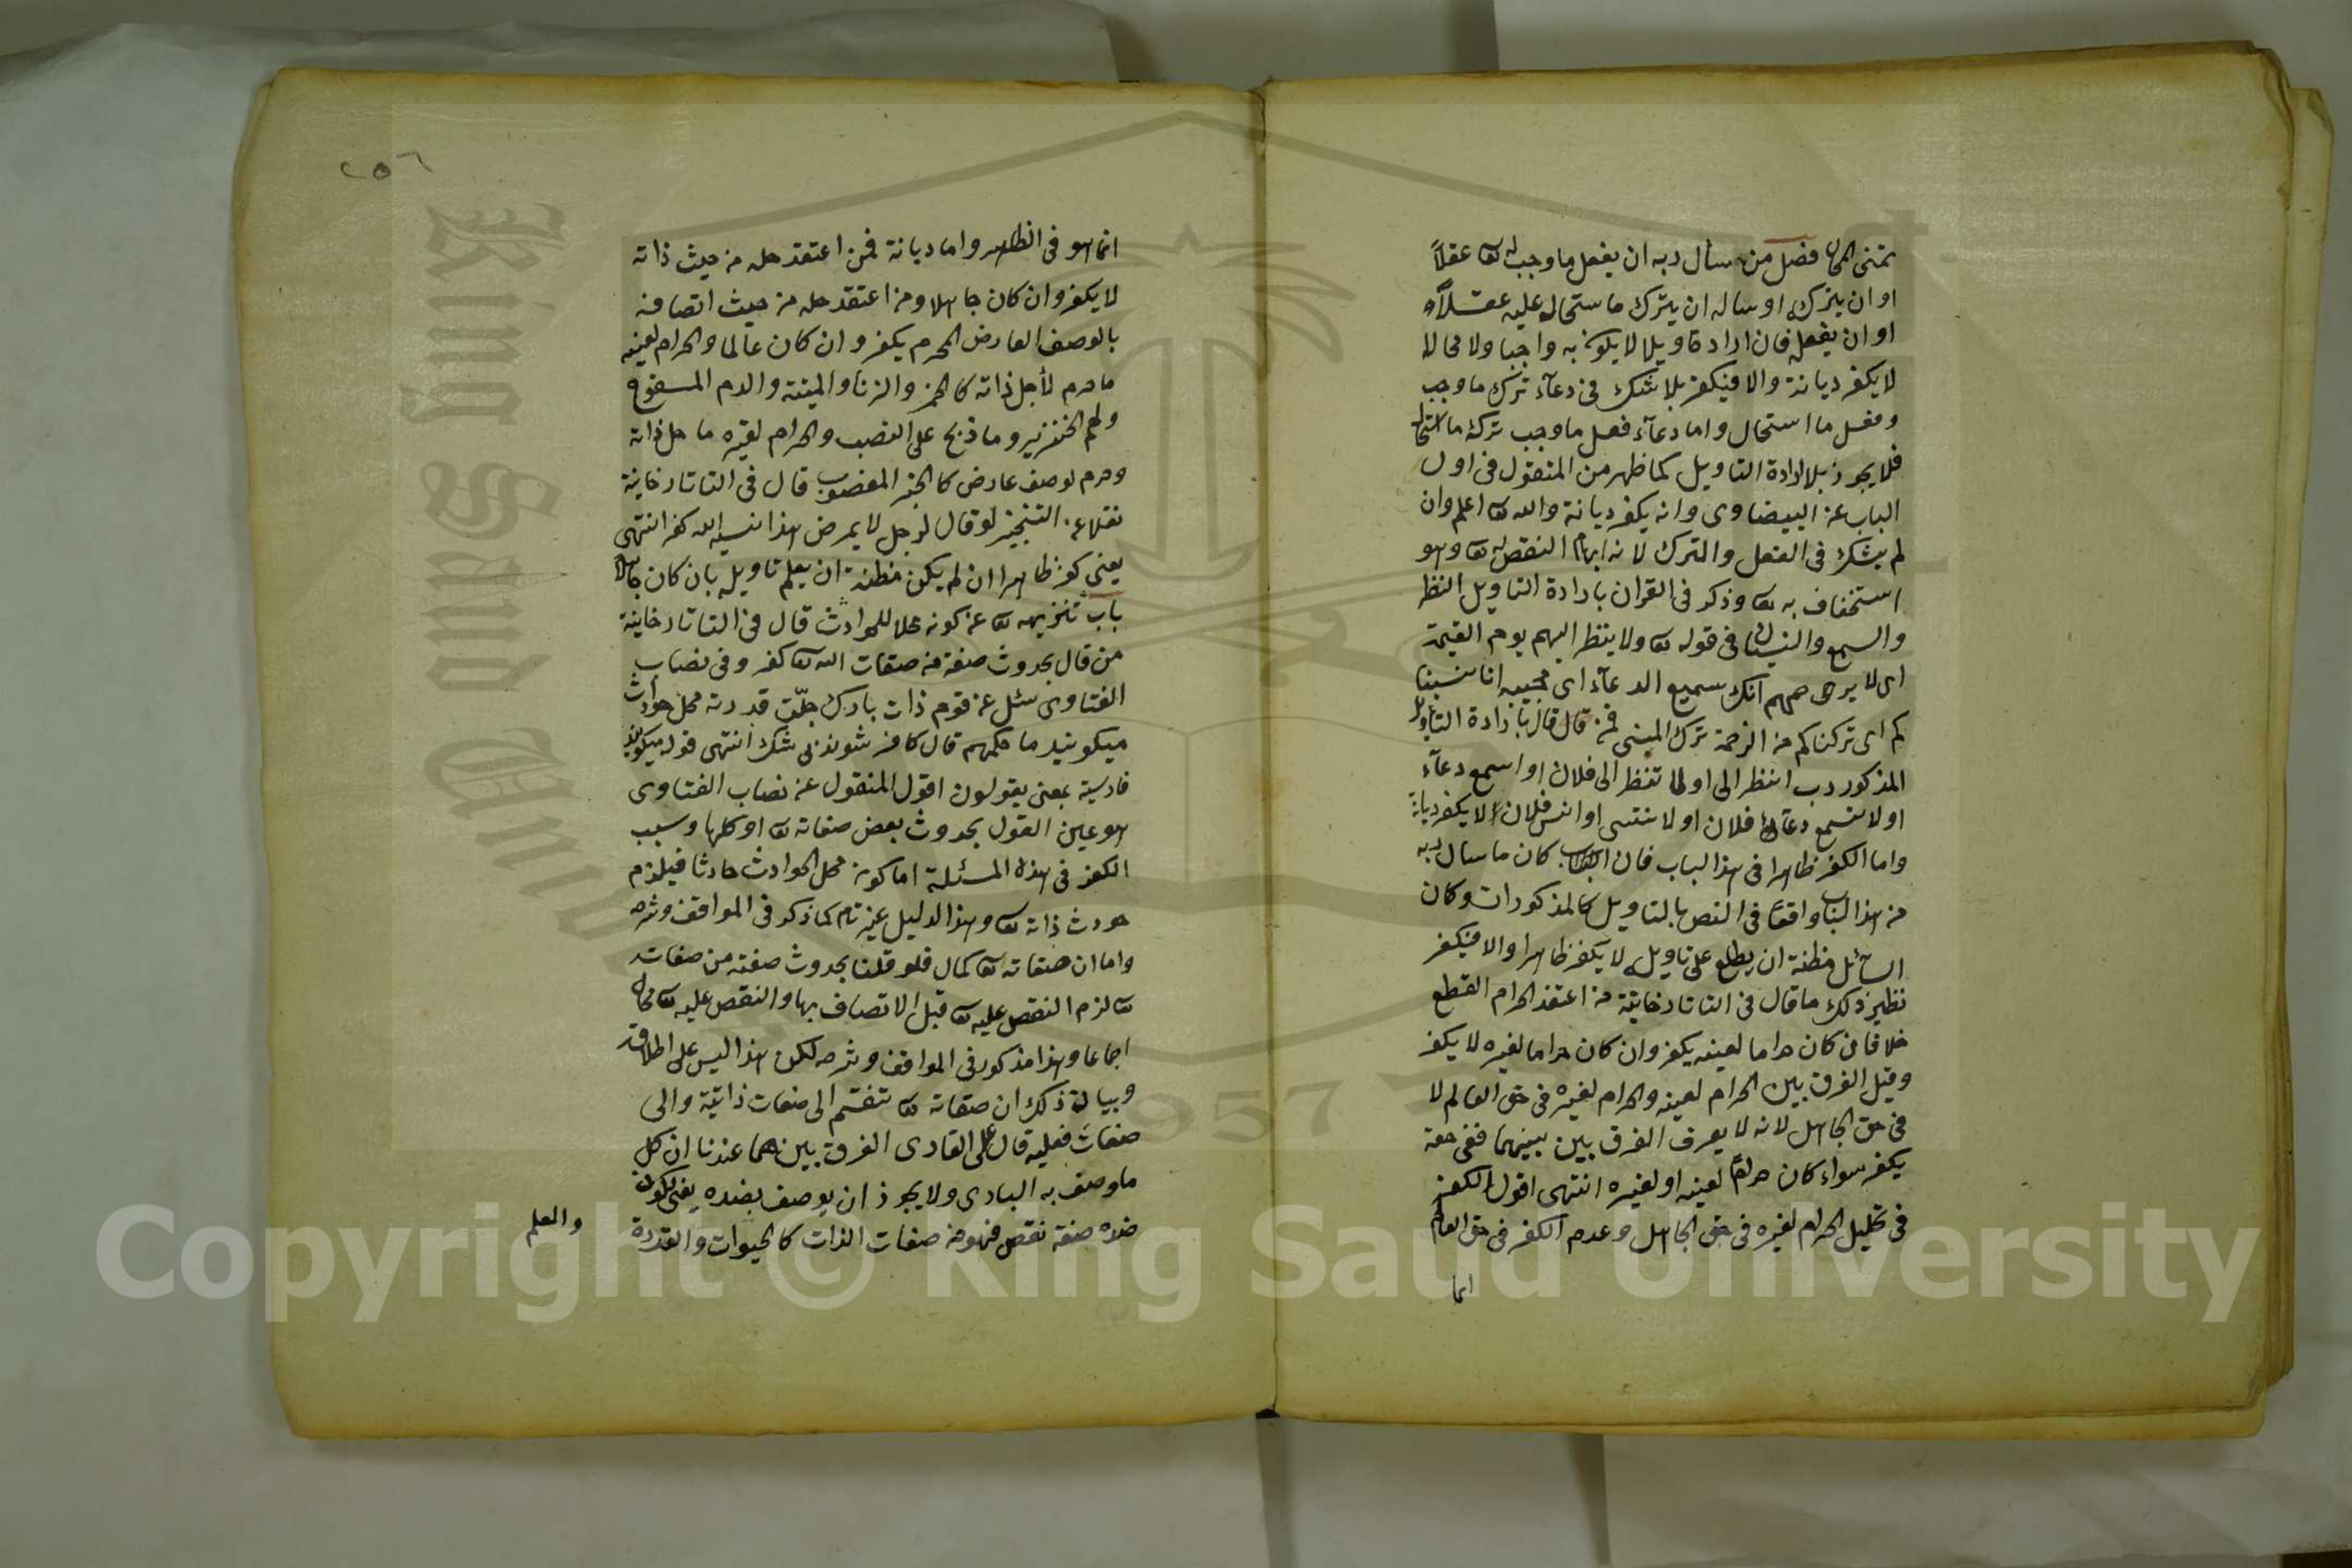 تمنى المحال فصل من سأل ربه ان يفعل ما وجب له تعا عقلاً
او ان يترك او ساله ان يترك ما ستحال عليه عقلاً
او ان يفعل فان اراد تاويلا لا يكون به واجبا ولا محالا
لا يكفر ديانة والا فيكفر بلا شك فى دعآء ترك ما وجب
وفعل ما استحال واما دعآء فعل ما وجب ترك ما استحال
فلا يجوز بلا ارادة التاويل كما ظهر من المنقول فى اول
الباب عن البيضاوى وانه يكفر ديانة والله تعا اعلم وان
لم يشك فى الفعل والترك لانه ايهام النقص له تعا وهو
استخفاف به تعا وذكر فى القران بارادة التاويل النظر
والسمع والنسيان فى قوله تعا ولا ينظر اليهم يوم القيمة
اى لا يرحمهم انك سميع الدعآء اى مجيبه انا نسينا
كم اى تركناكم من الرحمة ترك المنسى فمن قال بارادة التاويل
المذكور رب انظر الى او لا تنظر الى فلان او اسمع دعآء
او لا تسمع دعآء فلان او لا تنسى او انس فلان لا يكفر ديانة
واما الكفر ظاهرا فى هذا الباب فان كان ما سال ربه
من هذا الباب واقعا فى النص بالتاويل كالمذكورات وكان
السآئل مظنة ان يطلع على تاويله لا يكفر ظاهرا والا فيكفر
نظير ذلك ما قال فى التاتارخانية من اعتقد الحرام القطع
خلافا من كان حراما لعينه يكفر وان كان حراما لغيره لا يكفر
وقيل الفرق بين الحرام لعينه والحرام لغيره فى حق العالم لا
فى حق الجاهل لانه لا يعرف الفرق بين بينهما ففى حقه
يكفر سواء كان حراما لعينه او لغيره انتهى اقول الكفر
فى تحليل الحرام لغيره فى حق الجاهل وعدم الكفر فى حق العالم
انما
٢٥٦
انما هو فى الظاهر واما ديانة فمن اعتقد حله من حيث ذاته
لا يكفر وان كان جاهلا ومن اعتقد حله من حيث اتصافه
بالوصف العارض المحرم يكفر وان كان عالما والحرام لعينه
ما حرم لأجل ذاته كالخمر والزنا والميتة والدم المسفوح
ولحم الخنزير وما ذبح على النصب والحرام لغيره ما حل ذاته
وحرم لوصف عارض كالخبز المغصوب قال فى التاتارخانية
نقلا عن لو قال لرجل لا يمرض هذا نسيه الله كفر انتهى
يعنى كفر ظاهرا ان لم يكن مظنة ان يعلم تاويله بان كان جاهلا
باب تنزيهه تعا عن كونه محلا للحوادث قال فى التاتارخانية
من قال بحدوث صفة من صفات الله تعا كفر وفى نصاب
الفتاوى سئل عن قوم ذات بارى جلّت قدرته محل حوادث
ميكويند ما حكمهم قال كافر شوند بى شك انتهى قوله ميكويند
فارسية بمعنى يقولون اقول المنقول عن نصاب الفتاوى
هو عين القول بحدوث بعض صفاته تعا او كلها وسبب
الكفر فى هذه المسئلة اما كون محل الحوادث حادثا فيلزم
حدوث ذاته تعا وهذا الدليل غير تام كما ذكر فى المواقف وشرحه
واما ان صفاته تعا كمال فلو قلنا بحدوث صفة من صفاته
تعا لزم النقص عليه تعا قبل الاتصاف بها والنقص عليه تعا محال
اجماعا وهذا مذكور فى المواقف وشرحه لكن هذا ليس على اطلاقه
وبيان ذلك ان صفاته تعا تنقسم الى صفات ذاتية والى
صفات فعلية قال على القارى الفرق بينهما عندنا ان كل
ما وصف به البارى ولا يجوز ان يوصف بضده يعنى لكون
ضده صفة نقص فهو من صفات الذات كالحيوات والقدرة
والعلم
King Saud University
1957
Copyright © King Saud University